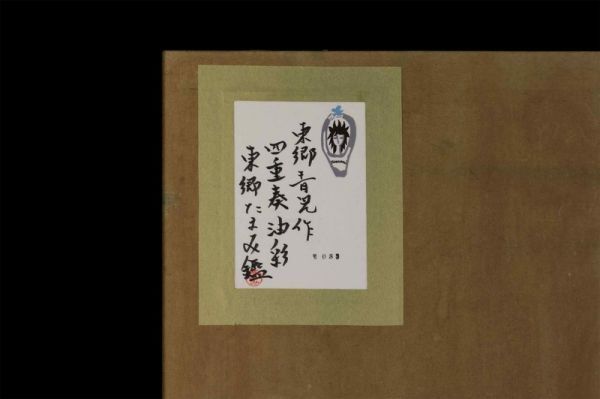 東郷青児作
四重奏油彩
東郷たまみ鑑